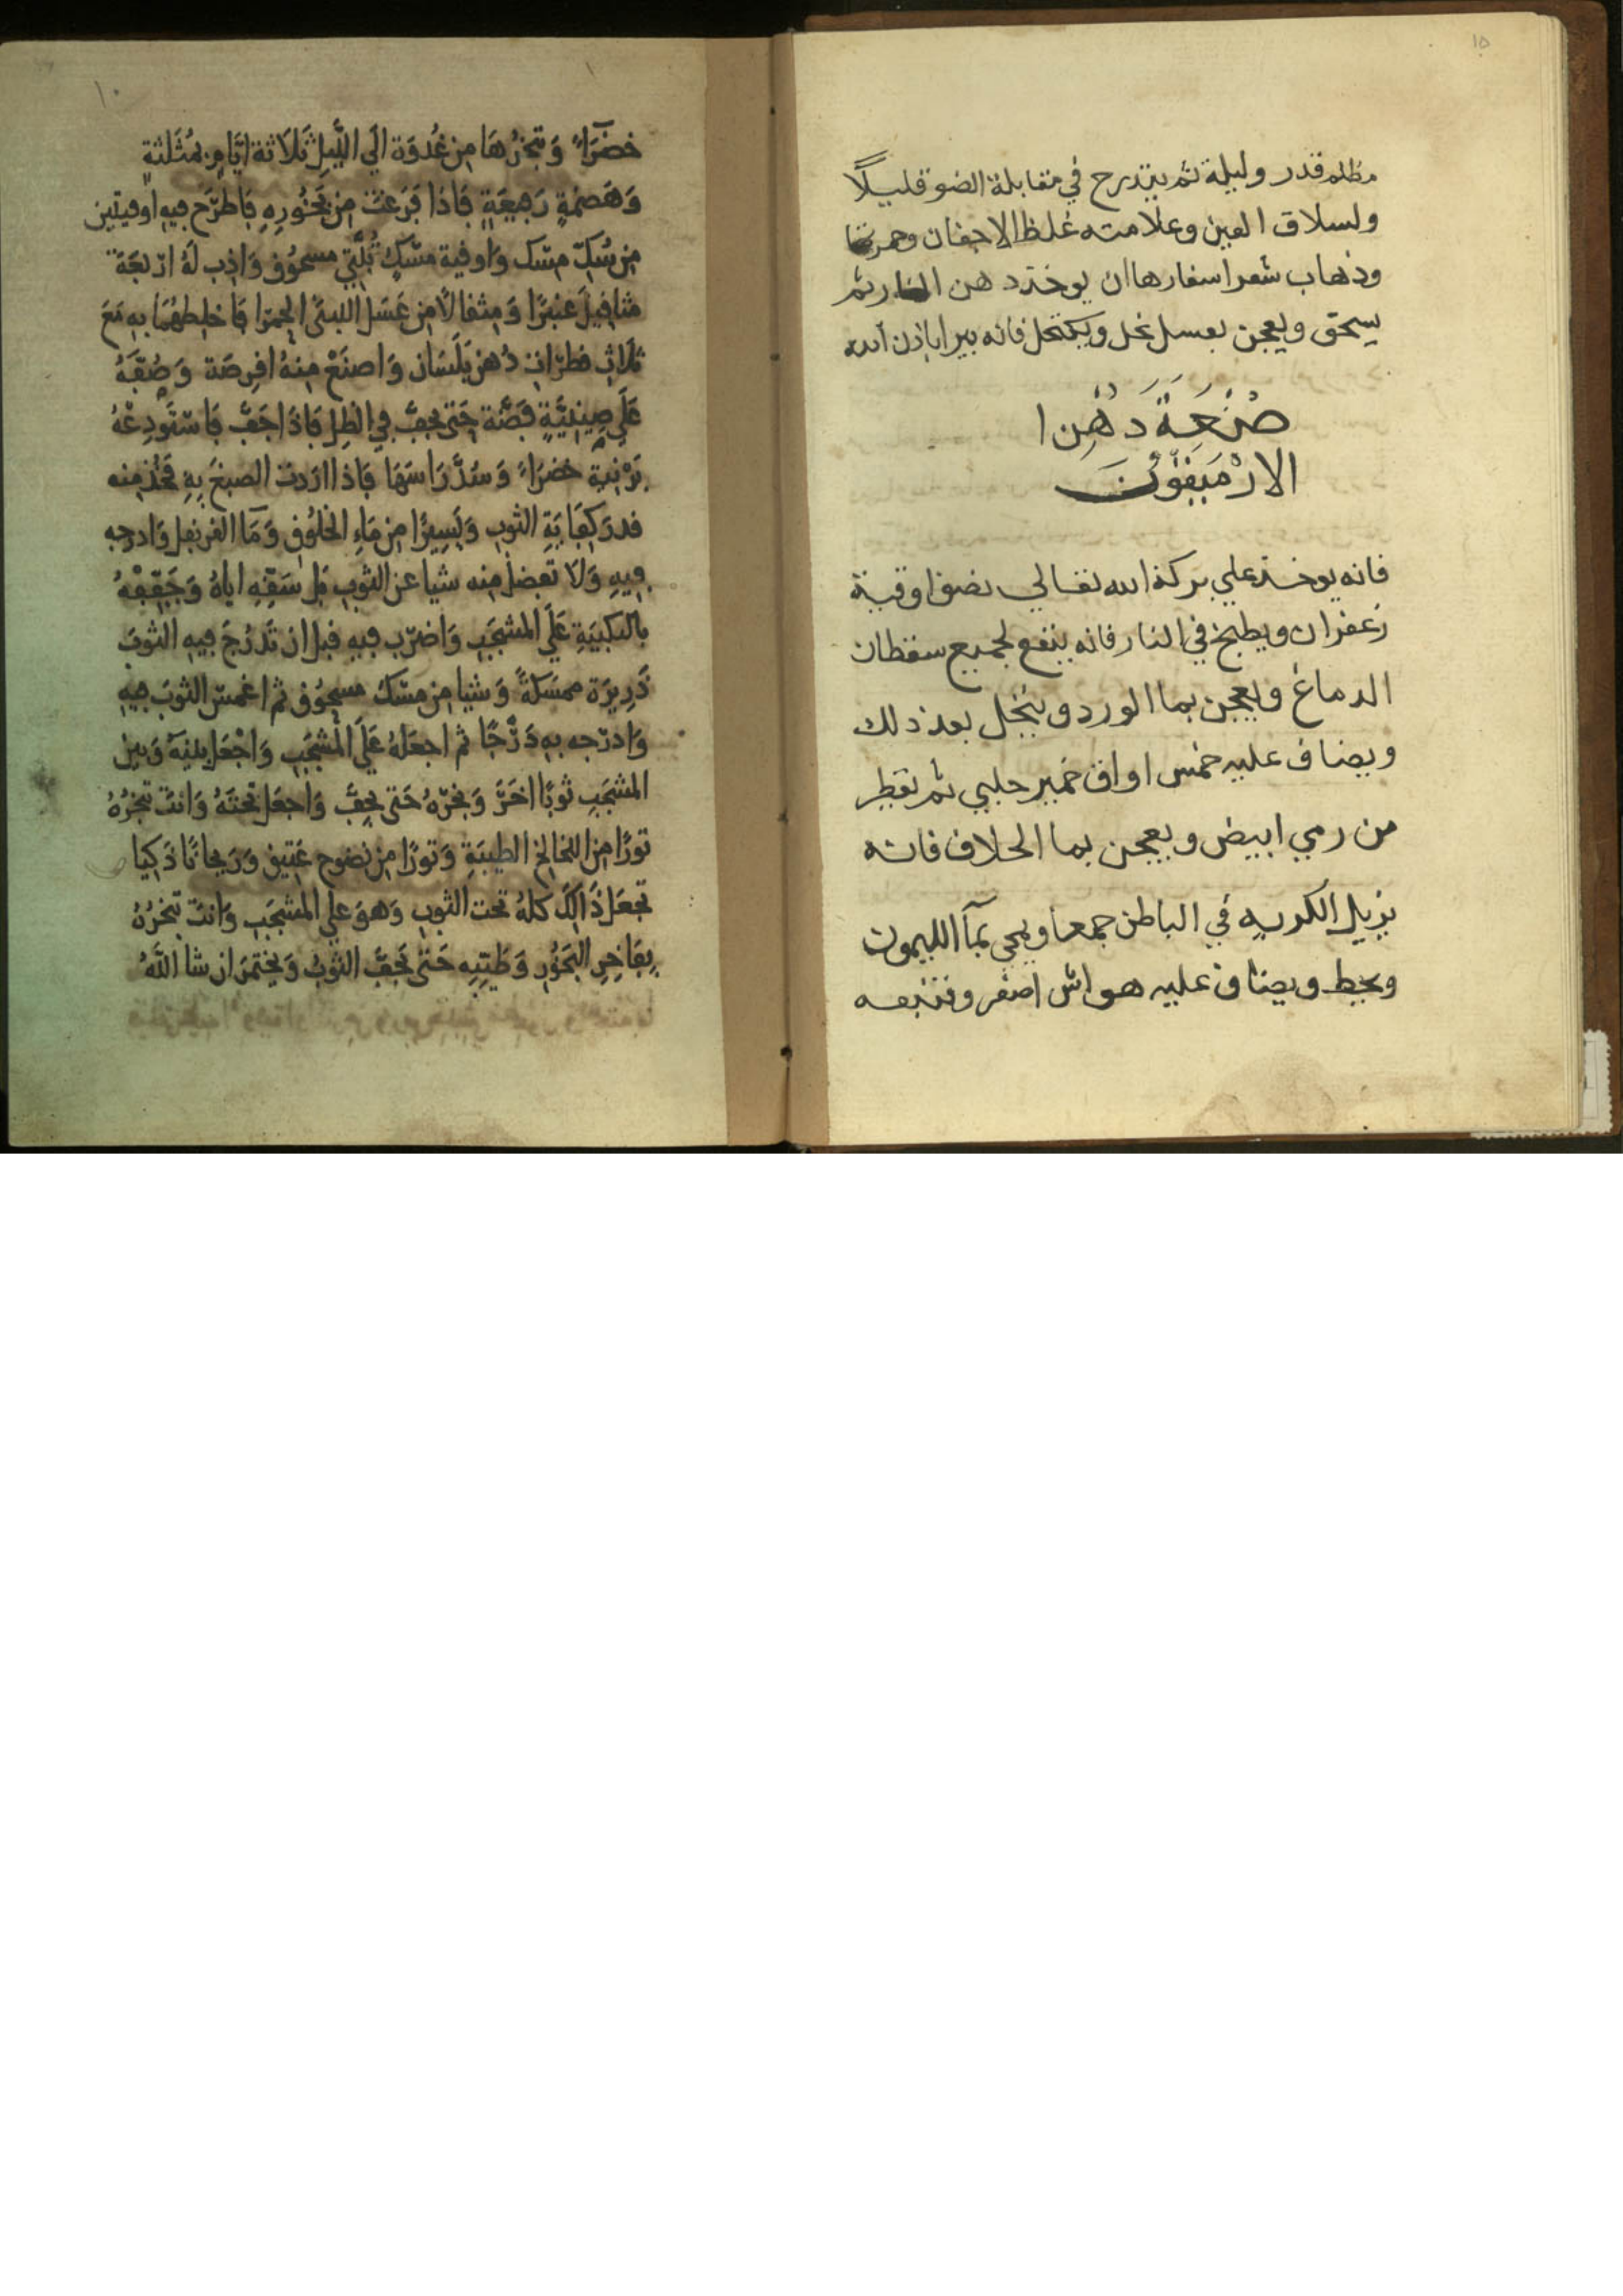 ١٥
مظلم قدر وليلة ثم يتدرج في مقابلة الضو قليلًا
ولسلاق العين وعلامته غلظ الاجفان وحمرتها
وذهاب شعر اسفارها ان يوخذ دهن ثم
يسحق ويعجن بعسل نحل ويكتحل فانه يبرا باذن الله
صنعة دهن ا
فانه يوخذ علي بركة الله تعالي نصف اوقية
زعفران ويطبخ في النار فانه ينفع لجميع سقطات
الدماغ ويعجن بما الورد وينخل بعد ذلك
ويضاف عليه خمس اواق خمير حلبي ثم تقطر
من رمي ابيض ويعجن بما الخلاف فانه
يزيل الكرب في الباطن جمعا بمآ الليمون
ويضاف عليه اصفر
١٠
خضرآء وَتبخرُهَا من غُدوَة الَي اللَّيل ثَلاَثة ايَّام مُثَلثةٍ
وَهَضمَةٍ رَجيعَةٍ فَاذا فَرَغتَ من بَخُورِهِ فَاطرَح فيهِ اوقيتين
من سُكّ مسْك وَاوقية مسْكٍ تُبَّتي مسحُوق وَاذب لَهُ ارْبعَة
مثاقيلَ عَنبرًا وَمثقالًا من عَسَل اللبنَى الحمرا فَاخلِطهُمَا بِهِ مَعَ
ثلَاث قطرَات دُهن بَلَسَان وَاصنَعْ منهُ اقرصَة وَصُفَّهُ
عَلَي صِينيَّةٍ فضَّة حَتى يجفَّ في الظِل فَاذَا جَفَّ فَاسْتَودِعْهُ
بَرْنيَة خضرَاء وَسُدَّ رَاسَهَا فَاذا ارَدت الصبغَ بِهِ فَخُذ منه
قدر كِفَايَةِ الثوب وَيَسِيرًا من مَاءِ الخلُوق وَمَآ القرنفل وَادرجه
فيهِ وَلَا تفضل منه شيا عن الثوب بل سَقّهِ اياهُ وَجَفِّفْهُ
بالتكبيَةِ عَلَي المشجَب وَاضرب فيه قبل ان تَدرُجَ فيه الثوبَ
ذَرِيرَة ممسَكةً وَشيا من مسْك مسحُوق ثم اغمس الثوبَ فيهِ
وَادرُجه بِهِ دَرْجًا ثم اجعَلهُ عَلَي المشجَب وَاجْعَل بينَهُ وَبين
المشجَب ثوبًا اخَرَ وَبخّرْهُ حَتى يَجفَّ وَاجعَل تحتَهُ وَانتَ تبخرُهُ
تورًا من اللخالخ الطيبَةِ وَتورًا من نضوح عَتيق وَريحانًا ذَكِيا
تجعَل ذَالكَ كلهُ تحت الثوب وَهوَ علي المشجَب وَانتَ تبخرُهُ
بفاخرِ البَخُور وَطَيّبِه حَتى يجَفَّ الثوبُ وَيختمرَ ان شا اللّهُ